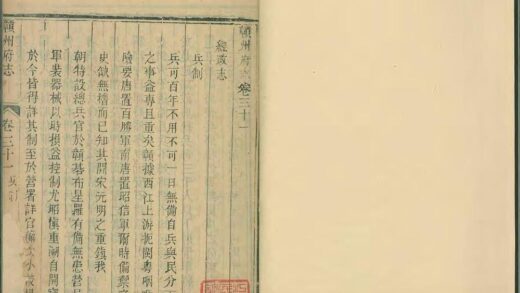 贛州府志卷三十一
經政志
兵制
兵可百年不用不可一日無備自兵與民分
之事益專且重矣贛據西江上游扼閩粵咽
險要唐置百勝軍南唐置昭信軍爾時備禦
史缺無稽而已知其爲宋元明之重鎮我
朝特設總兵官於贛基布星羅有備無患營
軍裝器械以時損益控制尤昭愼重溯自開
於今皆得詳其制至於營署詳官
贛州府志
卷三十一